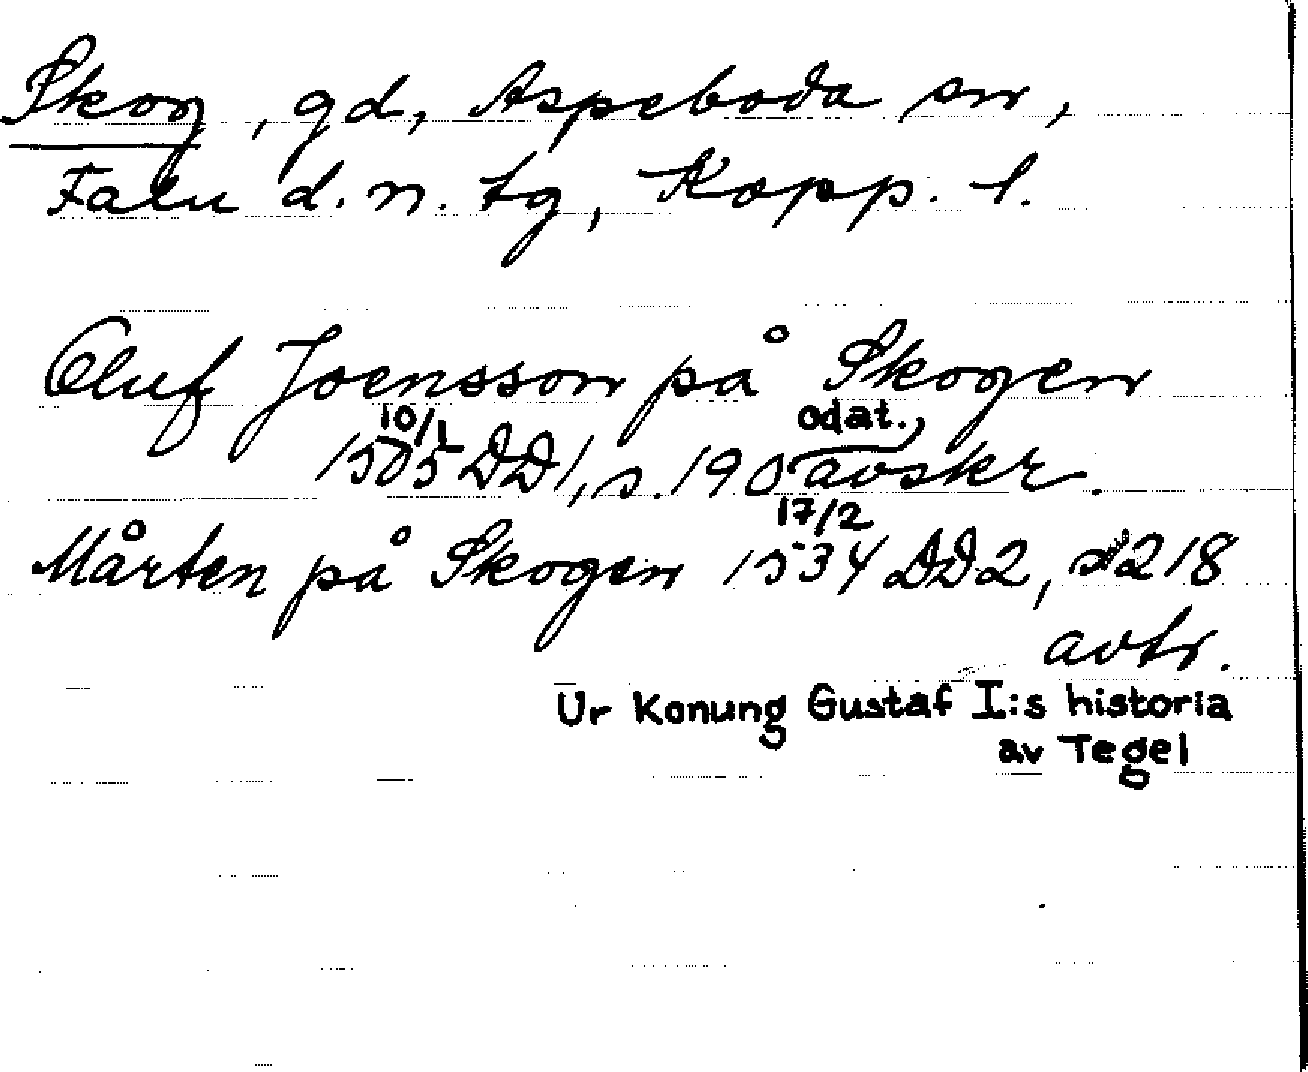 Skog, gd, Aspeboda sn,
Falu d. n. tg, Kopp. l.
Oluf Joensson på Skogen
10/1 odat.,
1505 DD1, s. 190 avskr.
17/2
Mårten på Skogen 1534 DD2, s 218
avtr.
Ur Konung Gustaf I:s historia
av Tegel